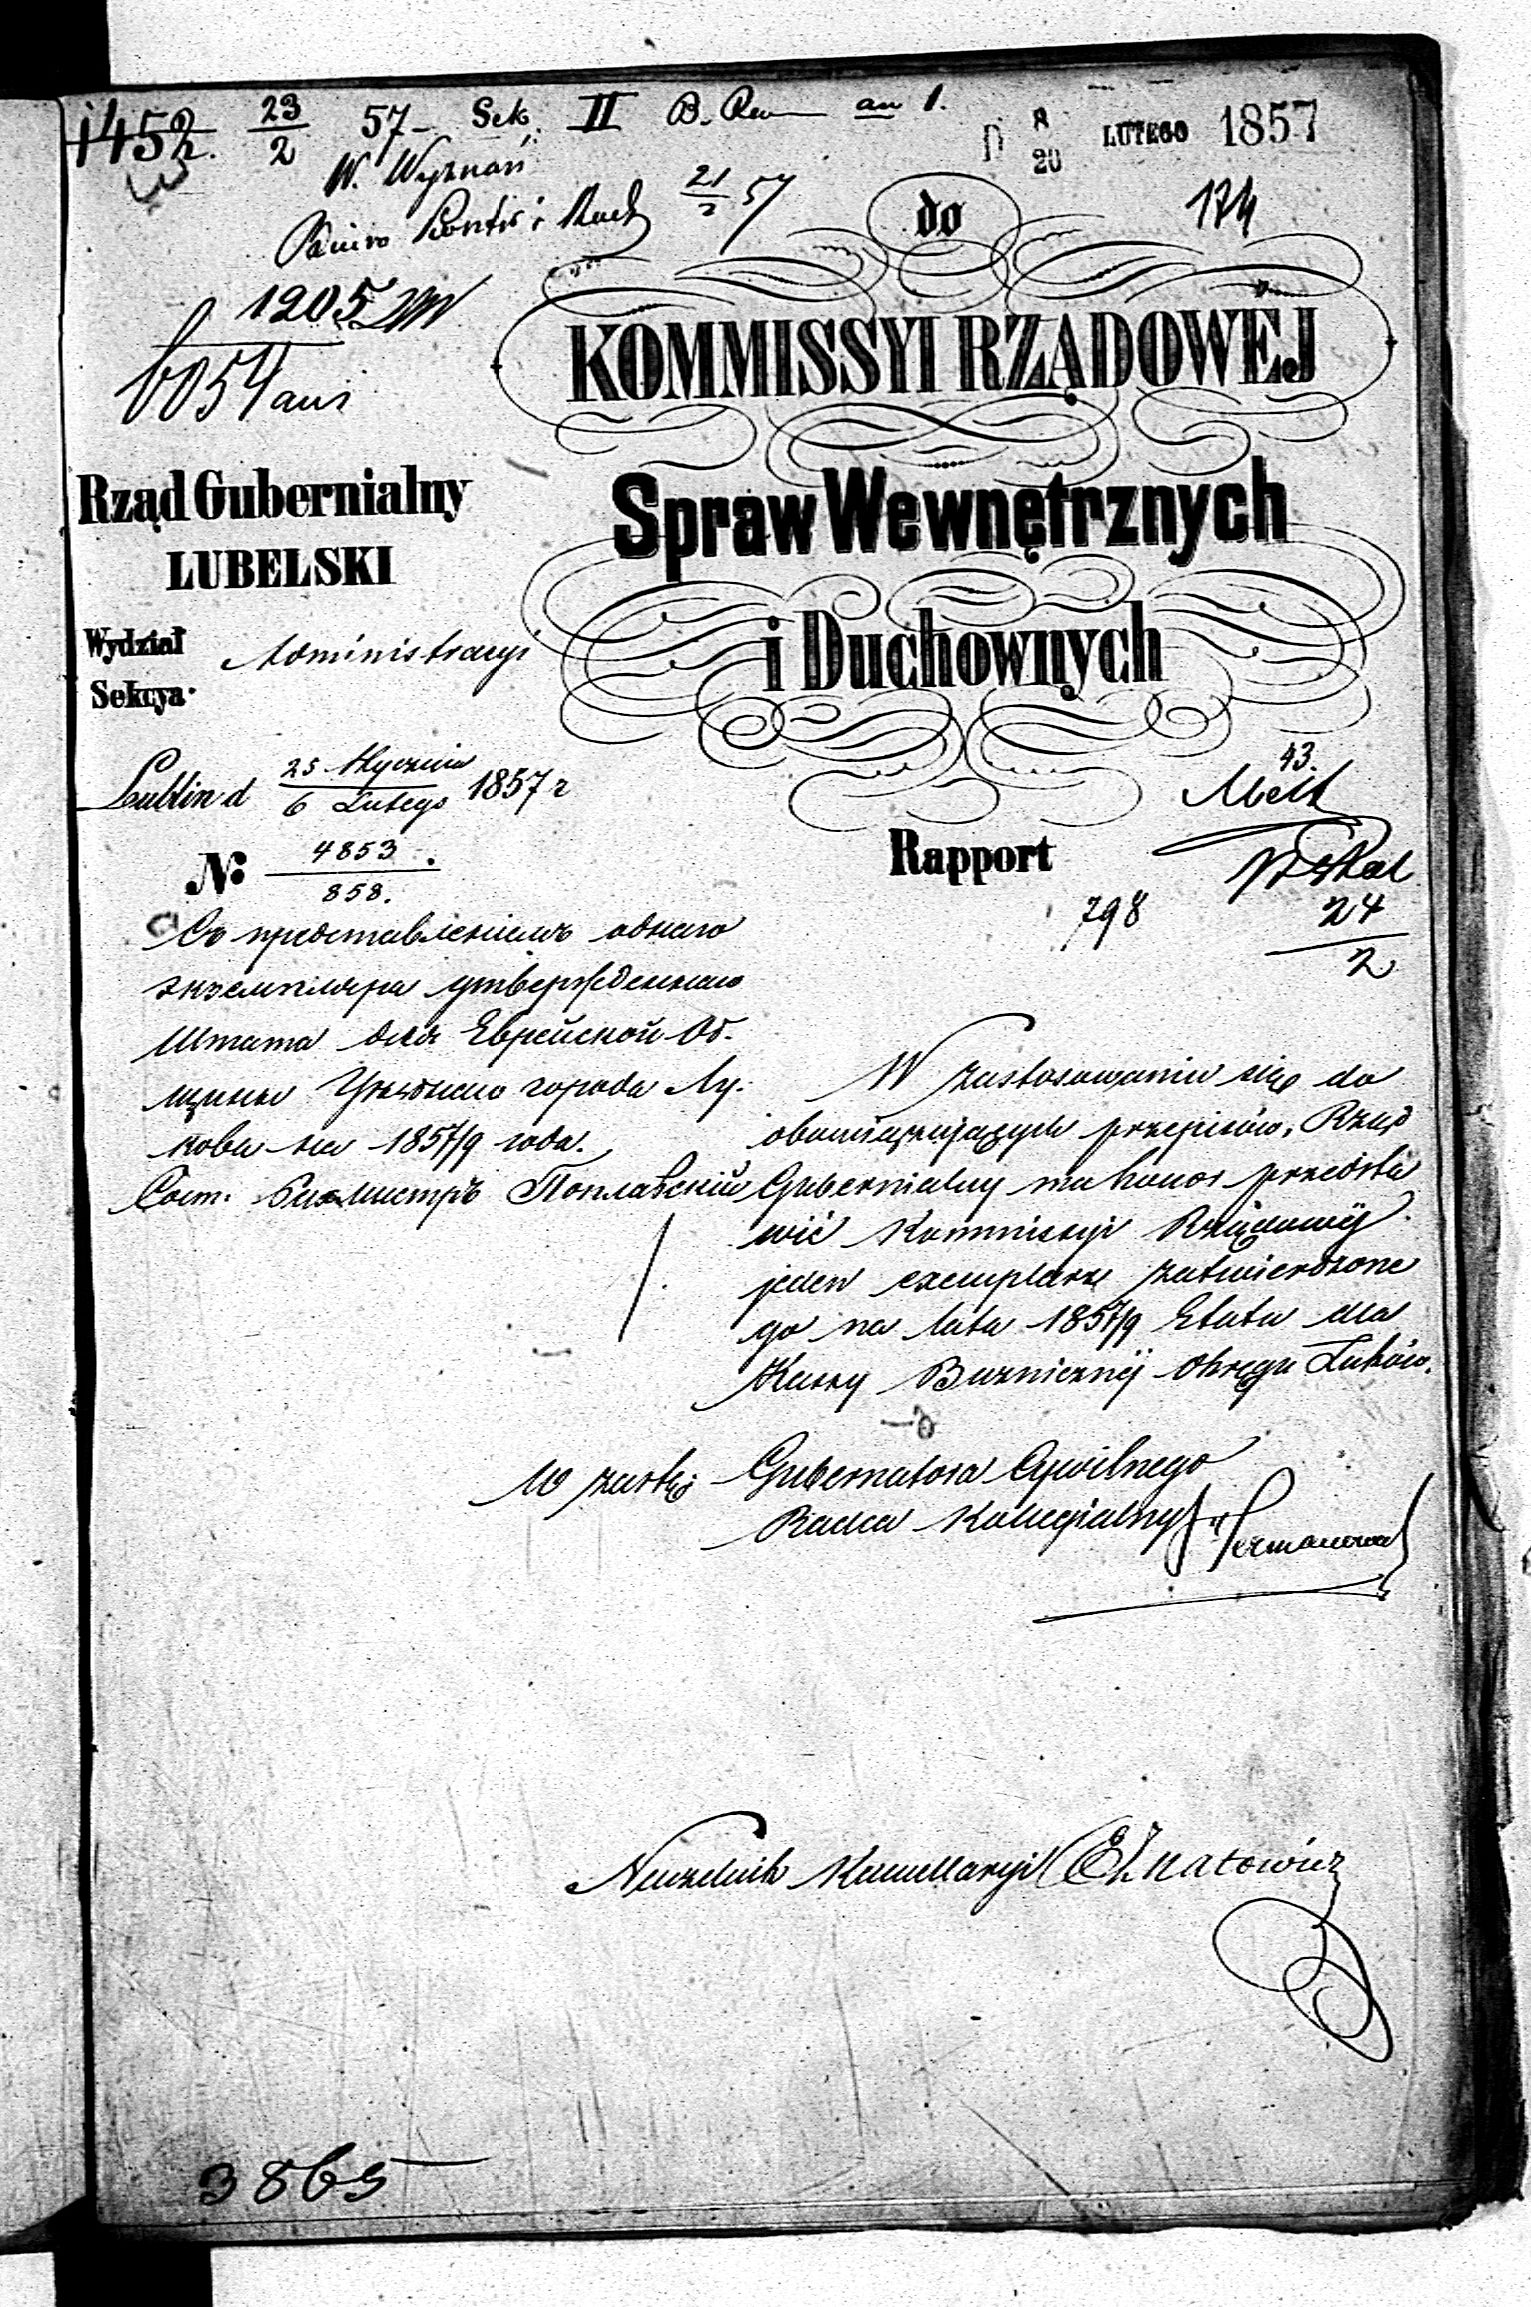 1452. 23/2 57 Sek. II B. Rew an 1.
D 8/20 LUTEGO 1857
W. Wyznań
Kontr i Rach 21/2 57
do
174
1205
6054
KOMMISSYI RZĄDOWĚJ
Rząd Gubernialny
LUBELSKI
Spraw Wewnętrznych
i Duchownych
Wydział Administracyi
Sekcya
Lublin d 25 Stycznia/6 Lutego 1857 r
43.
№ 4853/858.
Rapport
798
24/2
Съ представленіемъ однаго
экземпляра утвержденнаго
Штата для Еврейской Об-
щины Уѣзднаго города Лу-
кова на 1857/9 года.
Сост. Бухмистръ Поплавскій
W zastosowaniu się do
obowiązujących przepisów, Rząd
Gubernialny ma honor przedsta
wić Kommissyi Rządowěj
jeden exemplarz zatwierdzone
go na lata 1857/9 Etatu dla
Kassy Bużnicznéj Okręgu Łuków.
W zastę: Gubernatora Cywilnego
Radca Kollegialny
Naczelnik Kancellaryi
3865